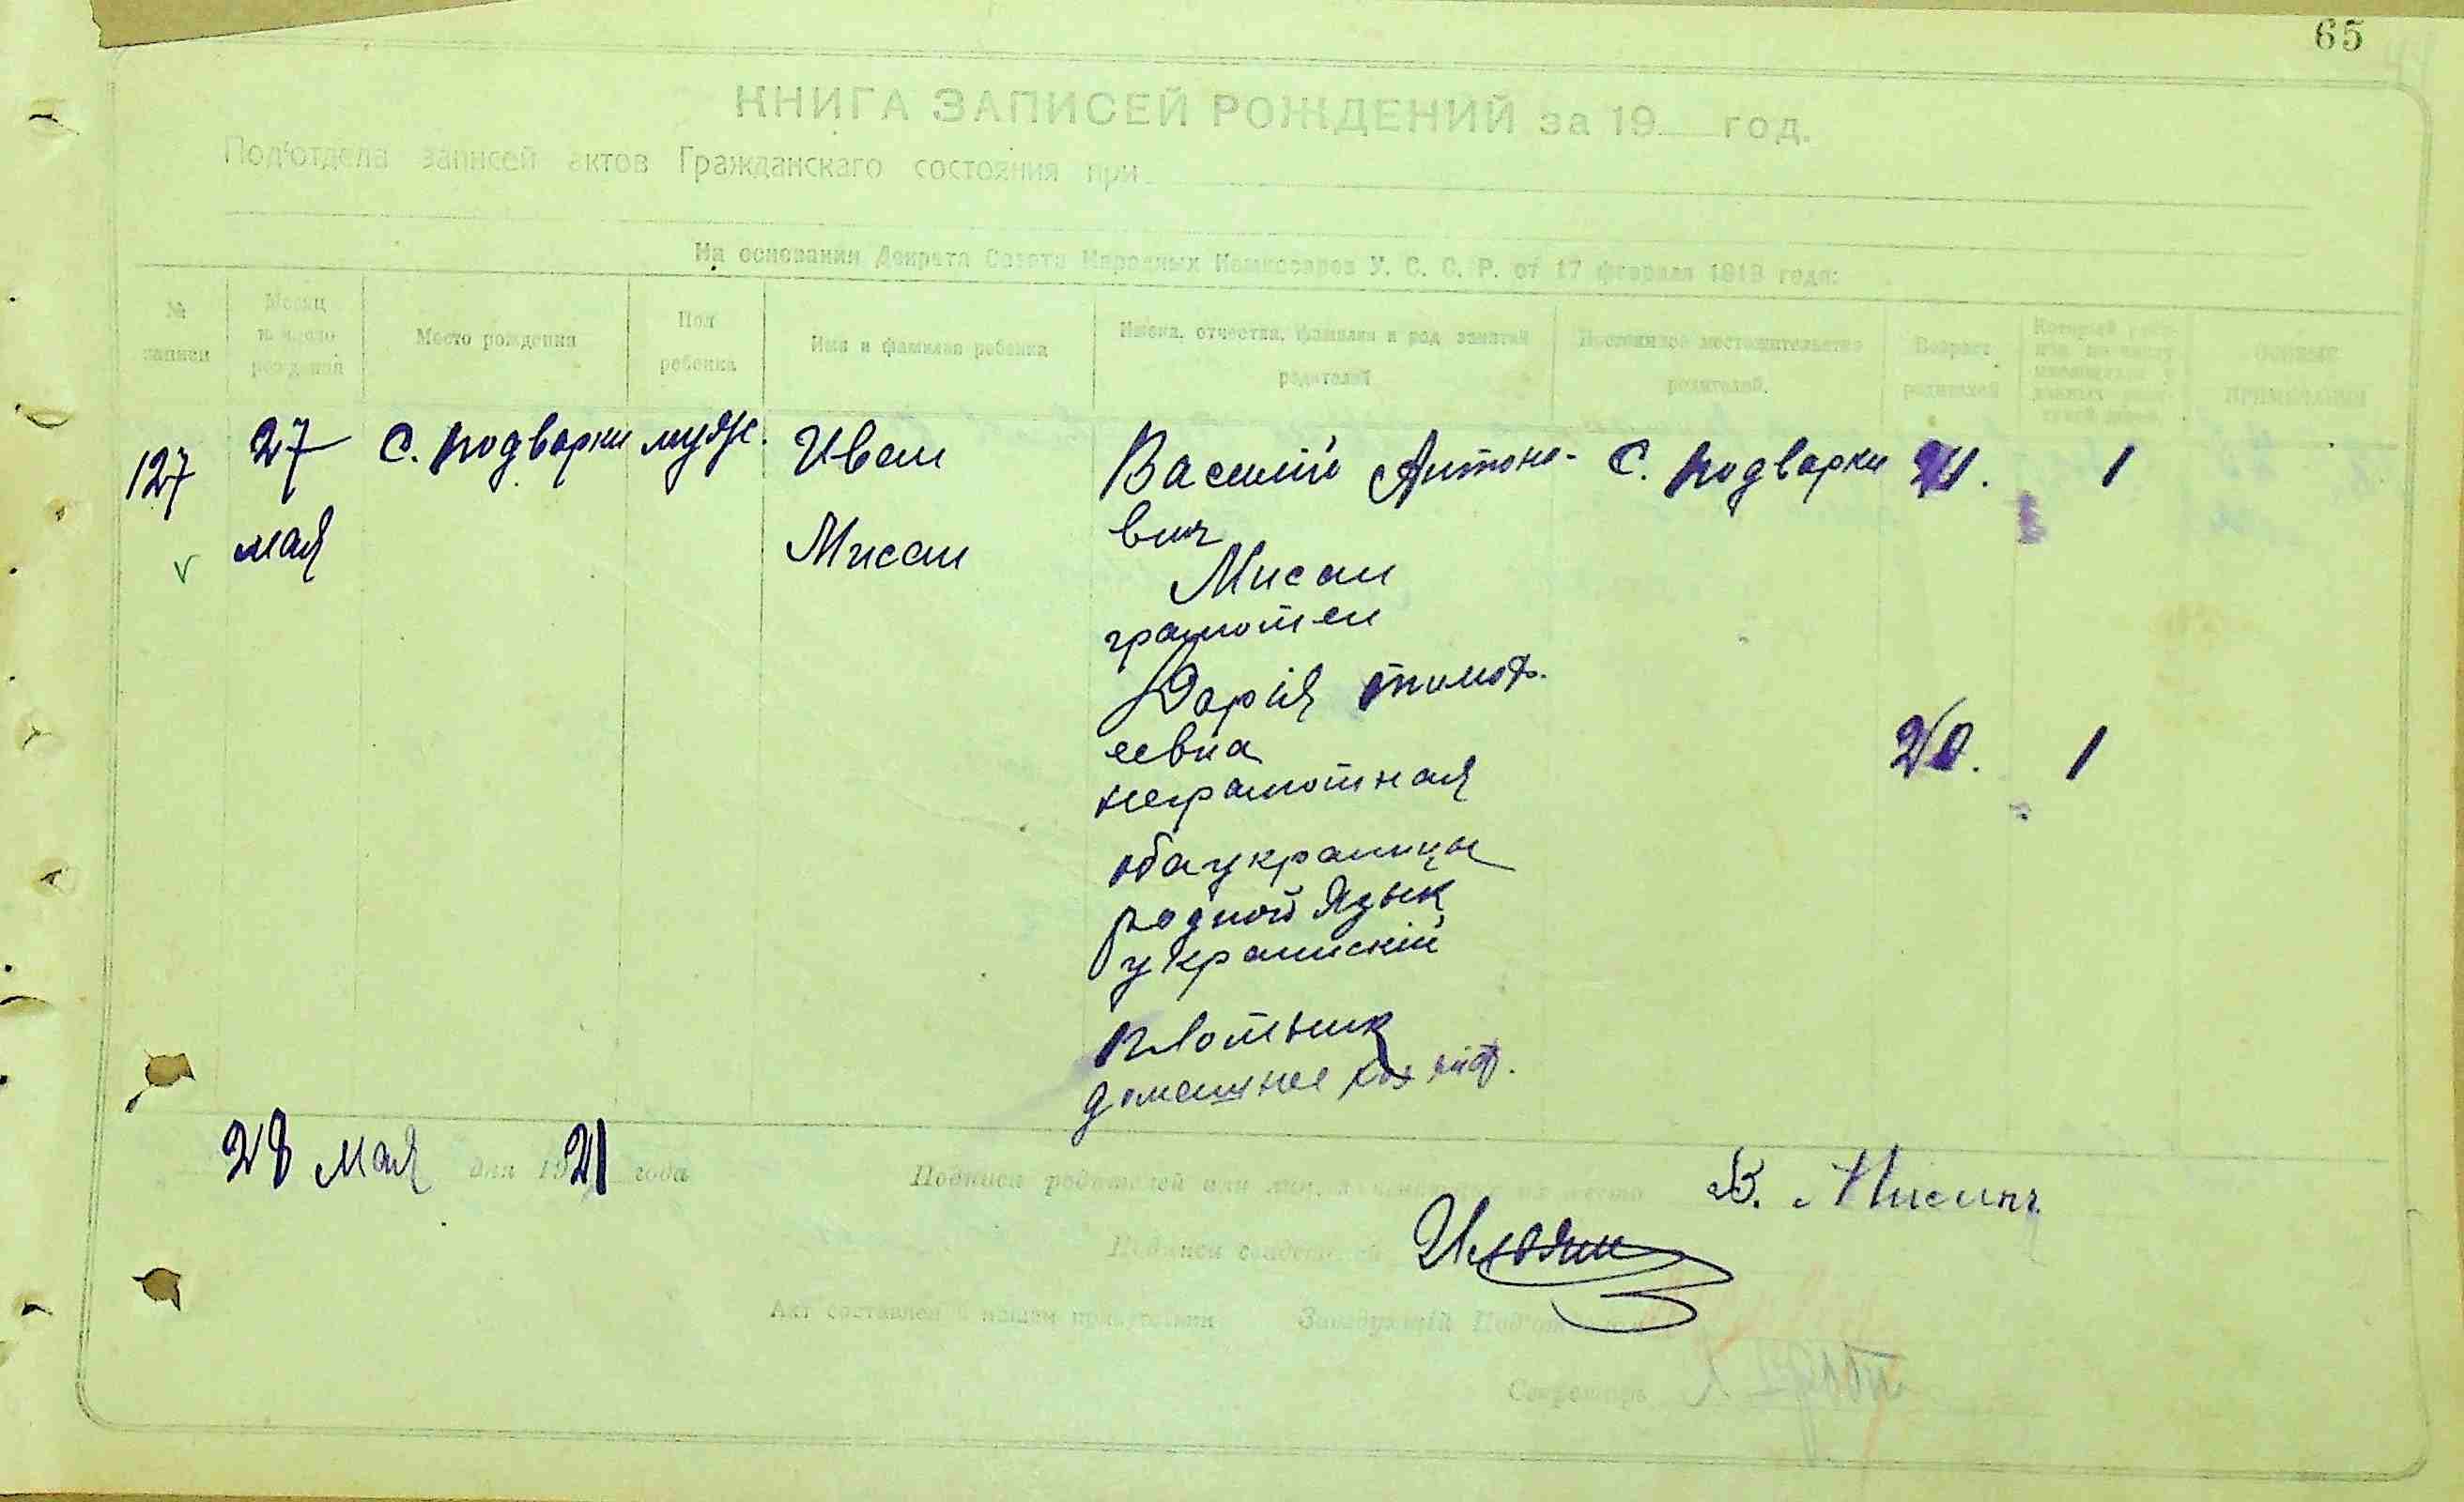 65
КНИГА ЗАПИСЕЙ РОЖДЕНИЙ за 19 год.
Под'отдела записей актов Гражданскаго состояния при
На основании Декрета Совета Народных Комиссаров У. С. С. Р. от 17 февраля 1919 года:
№ записи
Месяц и число рождения
Место рождения
Пол ребенка
Имя и фамилия ребенка
Имена, отчества, фамилии и род занятий родителей
Постоянное местожительство родителей.
Возраст родителей
ОСОБЫЕ ПРИМЕЧАНИЯ
127 27 мая
с. Подварки
муж.
Иван
Мисан
Василий Антоно-
вич
Мисан
грамотен
Дарія Тимоф.
еевна
неграмотная
оба украинцы
родной язык
украинскій
плотник
домашнее
С. Подварки
1
20. 1
28 мая дня 1921 года
Подписи родителей или лиц, их место В. Мисан
Подписи свидетелей
Акт составлен в нашем присутствии Заведующій Под'отделом
Секретарь